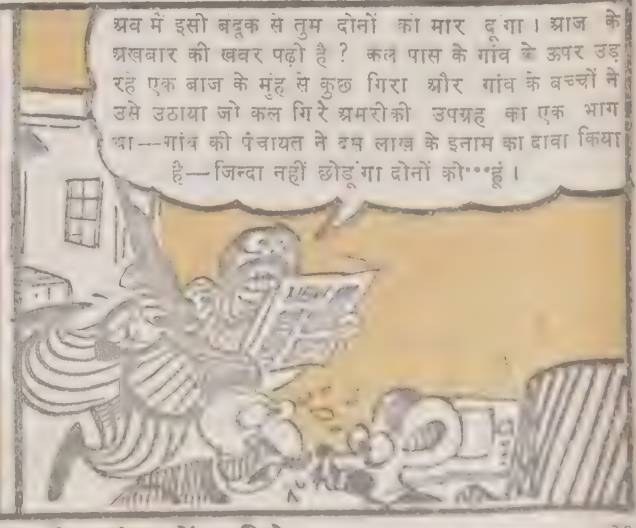 अब मैं इसी बंदूक से तुम दोनों को मार दूंगा । आज के
अखबार की खबर पढ़ी है ? कल पास के गांव के ऊपर उड़
रहे एक बाज के मुंह से कुछ गिरा और गांव के बच्चों ने
उसे उठाया जो कल गिरे अमरीकी उपग्रह का एक भाग
था—गांव की पंचायत ने दस लाख के इनाम का दावा किया
है—जिन्दा नहीं छोड़ूंगा दोनों को•••हूं ।